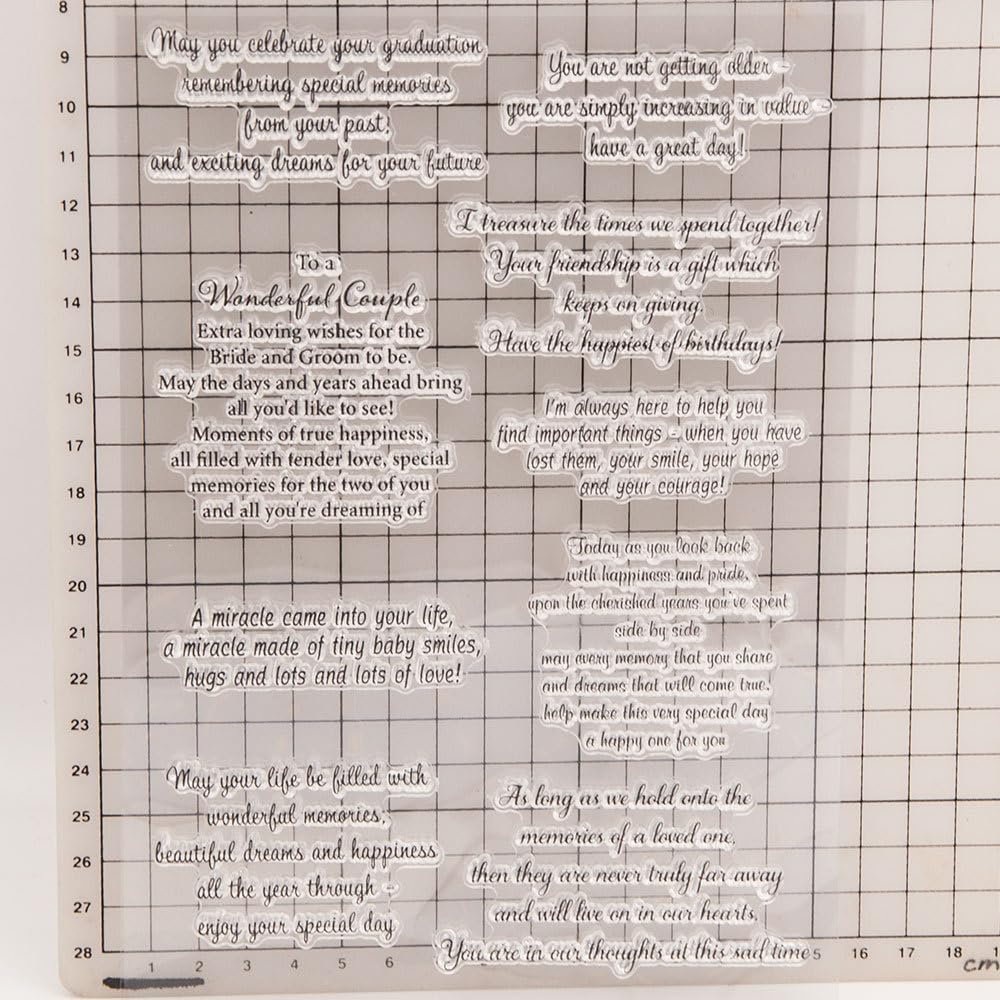 May you celebrate your graduation
remembering special memories
from your past,
and exciting dreams for your future
To a
Wonderful Couple
Extra loving wishes for the
Bride and Groom to be.
May the days and years ahead bring
all you'd like to see!
Moments of true happiness,
all filled with tender love, special
memories for the two of you
and all you're dreaming of
A miracle came into your life,
a miracle made of tiny baby smiles,
hugs and lots and lots of love!
May your life be filled with
wonderful memories,
beautiful dreams and happiness
all the year through -
enjoy your special day
You are not getting older -
you are simply increasing in value -
have a great day!
I treasure the times we spend together!
Your friendship is a gift which
keeps on giving.
Have the happiest of birthdays!
I'm always here to help you
find important things - when you have
lost them, your smile, your hope
and your courage!
Today as you look back
with happiness and pride,
upon the cherished years you've spent
side by side
may every memory that you share
and dreams that will come true,
help make this very special day
a happy one for you
As long as we hold onto the
memories of a loved one,
then they are never truly far away
and will live on in our hearts.
You are in our thoughts at this sad time
8
9
10
11
12
13
14
15
16
17
18
19
20
21
22
23
24
25
26
27
28
1 2 3 4 5 6 5 16 17 18
cm